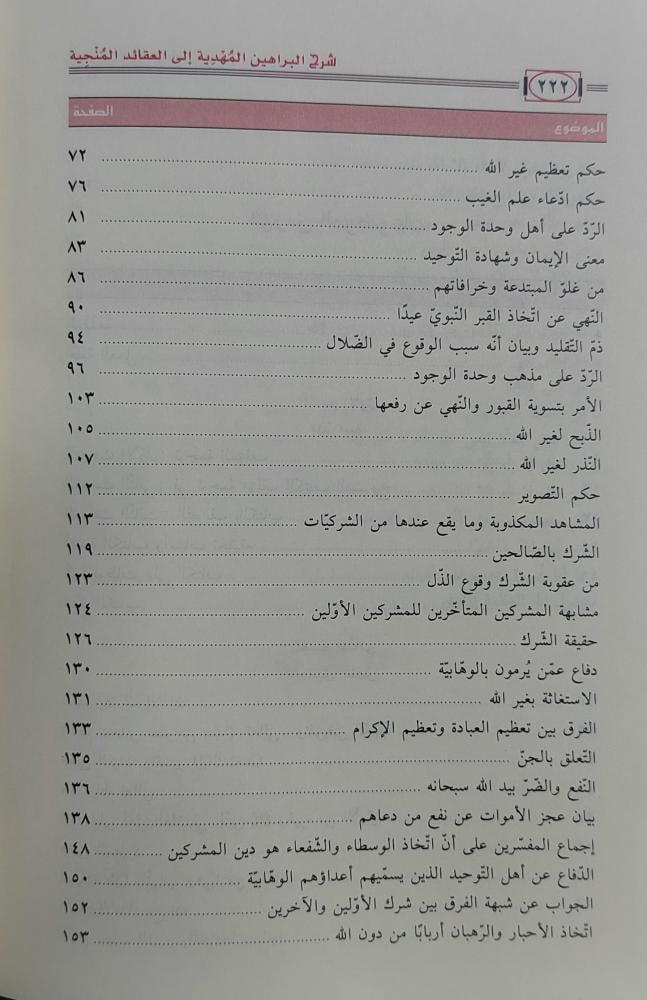 شرح البراهين المُهْدِية إلى العقائد المُنْجِية
٢٢٢
الموضوع الصفحة
حكم تعظيم غير الله ٧٢
حكم ادّعاء علم الغيب ٧٦
الرّدّ على أهل وحدة الوجود ٨١
معنى الإيمان وشهادة التّوحيد ٨٣
من غلوّ المبتدعة وخرافاتهم ٨٦
النّهي عن اتّخاذ القبر النّبويّ عيدًا ٩٠
ذمّ التّقليد وبيان أنّه سبب الوقوع في الضّلال ٩٤
الرّدّ على مذهب وحدة الوجود ٩٦
الأمر بتسوية القبور والنّهي عن رفعها ١٠٣
الذّبح لغير الله ١٠٥
النّذر لغير الله ١٠٧
حكم التّصوير ١١٢
المشاهد المكذوبة وما يقع عندها من الشركيّات ١١٣
الشّرك بالصّالحين ١١٩
من عقوبة الشّرك وقوع الذّل ١٢٣
مشابهة المشركين المتأخّرين للمشركين الأوّلين ١٢٤
حقيقة الشّرك ١٢٦
دفاع عمّن يُرمون بالوهّابيّة ١٣٠
الاستغاثة بغير الله ١٣١
الفرق بين تعظيم العبادة وتعظيم الإكرام ١٣٣
التّعلق بالجنّ ١٣٥
النّفع والضّرّ بيد الله سبحانه ١٣٦
بيان عجز الأموات عن نفع من دعاهم ١٣٨
إجماع المفسّرين على أنّ اتّخاذ الوسطاء والشّفعاء هو دين المشركين ١٤٨
الدّفاع عن أهل التّوحيد الذين يسمّيهم أعداؤهم الوهّابيّة ١٥٠
الجواب عن شبهة الفرق بين شرك الأوّلين والآخرين ١٥٢
اتّخاذ الأحبار والرّهبان أربابًا من دون الله ١٥٣